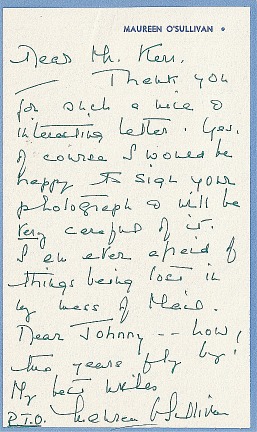 MAUREEN O'SULLIVAN •
Dear Mr. Kerr.
Thank you
for such a nice &
interesting letter. Yes.
of course I would be
happy to sign your
photograph & will be
very careful of it.
I am ever afraid of
things being lost in
my mess of Mail.
Dear Johnny -- how
the years fly by!
My best wishes
P.T.O. Maureen O'Sullivan